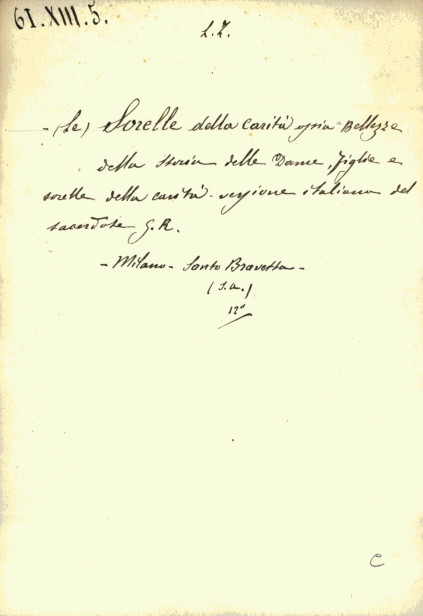 61.XIII.5.
L.Z.
- (Le) Sorelle della carità ossia Bellezze
della storia delle Dame, figlie e
sorelle della carità. versione italiana del
sacerdote G.R.
- Milano - Santo Bravetta -
(s.a.)
12°
C